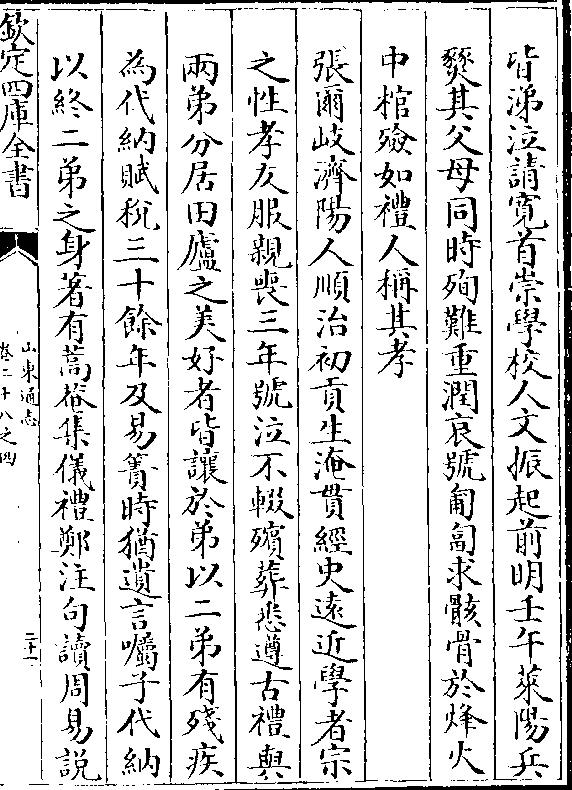 皆涕泣請寛首崇學校人文振起前明壬午萊陽兵
燹其父母同時殉難重潤哀號匍匐求骸骨於烽火
中棺殮如禮人稱其孝
張爾岐濟陽人順治初貢生淹貫經史遠近學者宗
之性孝友服親喪三年號泣不輟殯葬悉遵古禮與
兩弟分居田廬之美好者皆讓於弟以二弟有殘疾
為代納賦稅三十餘年及易簀時猶遺言囑子代納
以終二弟之身著有蒿菴集儀禮鄭注句讀周易説
欽定四庫全書
山東通志
卷二十八之四
二十一